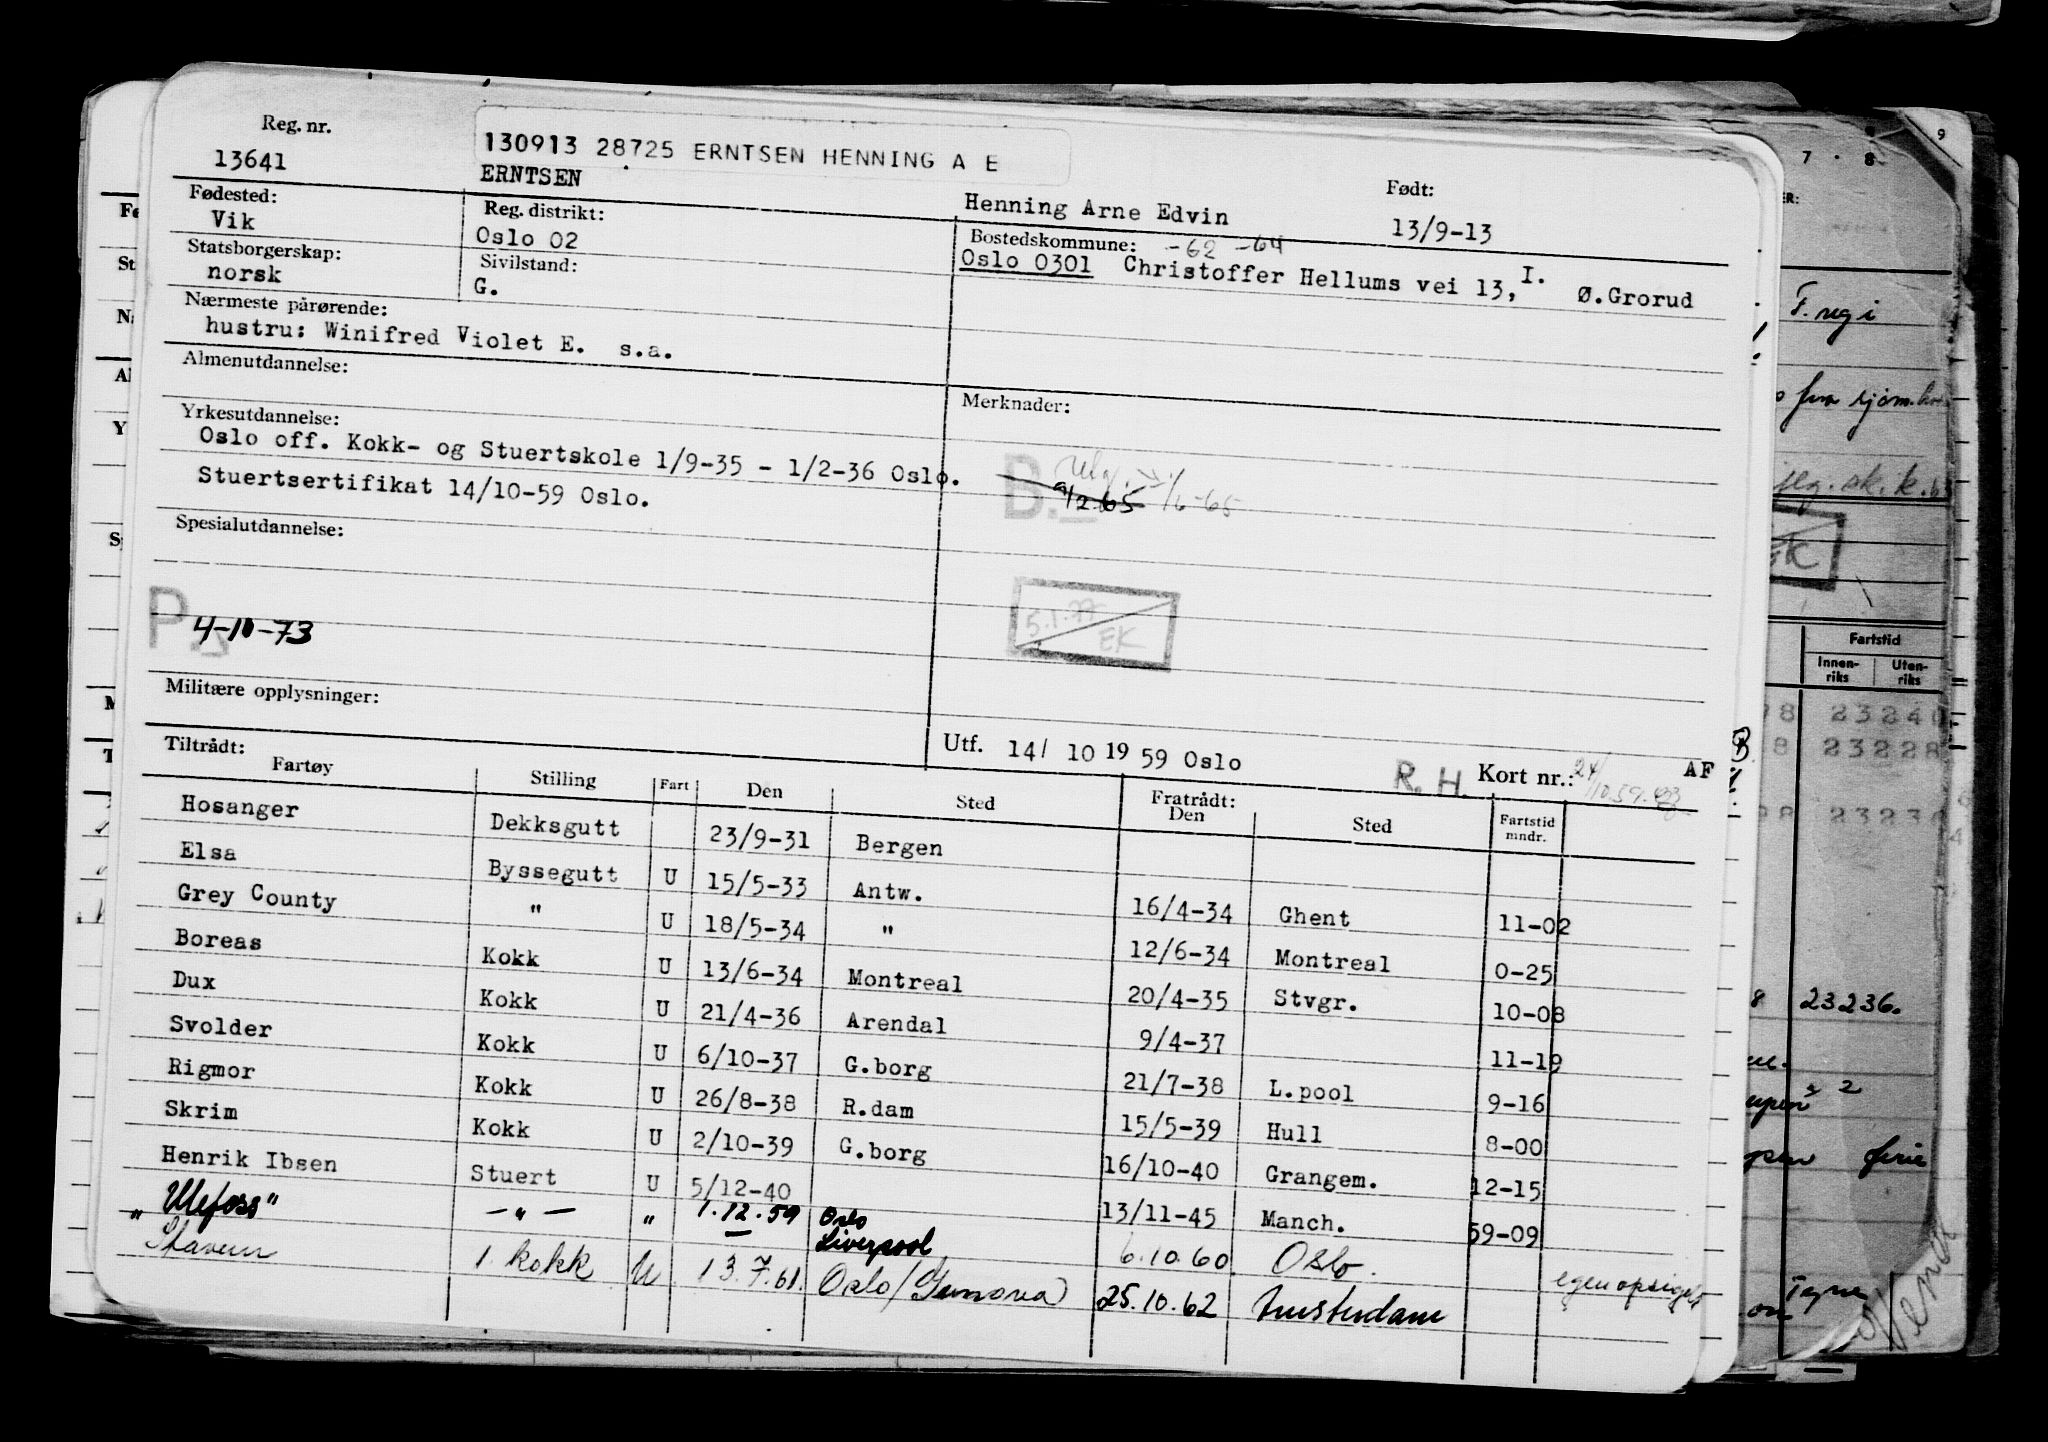 Reg. nr.
13641
130913 28725 ERNTSEN HENNING A E
ERNTSEN
Henning Arne Edvin
Født:
13/9-13
Fødested:
Vik
Reg. distrikt:
Oslo 02
Bostedskommune: -62 -64
Oslo 0301 Christoffer Hellums vei 13, I. Ø.Grorud
Statsborgerskap:
norsk
Sivilstand:
G.
Nærmeste pårørende:
hustru: Winifred Violet E. s.a.
Almenutdannelse:
Merknader:
Yrkesutdannelse:
Oslo off. Kokk- og Stuertskole 1/9-35 - 1/2-36 Oslo.
Stuertsertifikat 14/10-59 Oslo.
B. 9/2-65 1/6-65
Spesialutdannelse:
P. 4-10-73
5.1.77
EK
Militære opplysninger:
Utf. 14/ 10 19 59 Oslo
R. H. Kort nr.: AF
Tiltrådt:
Fartøy Stilling Fart Den Sted Fratrådt: Den Sted Fartstid mndr.
Hosanger Dekksgutt 23/9-31 Bergen
Elsa Byssegutt U 15/5-33 Antw. 16/4-34 Ghent 11-02
Grey County " U 18/5-34 " 12/6-34 Montreal 0-25
Boreas Kokk U 13/6-34 Montreal 20/4-35 Stvgr. 10-08
Dux Kokk U 21/4-36 Arendal 9/4-37 11-19
Svolder Kokk U 6/10-37 G.borg 21/7-38 L.pool 9-16
Rigmor Kokk U 26/8-38 R.dam 15/5-39 Hull 8-00
Skrim Kokk U 2/10-39 G.borg 16/10-40 Grangem. 12-15
Henrik Ibsen Stuert U 5/12-40 13/11-45 Manch. 59-09
"Ulefoss" -"- " 1.12.59 Oslo Liverpool 6.10.60 Oslo.
Stavern 1. kokk U 13.7.61. Oslo/Genova 25.10.62 Amsterdam egen oppsigelse
9
7 . 8
F. reg i
EK
Fartstid
Innenriks Utenriks
23240
23228
23236.
ferie